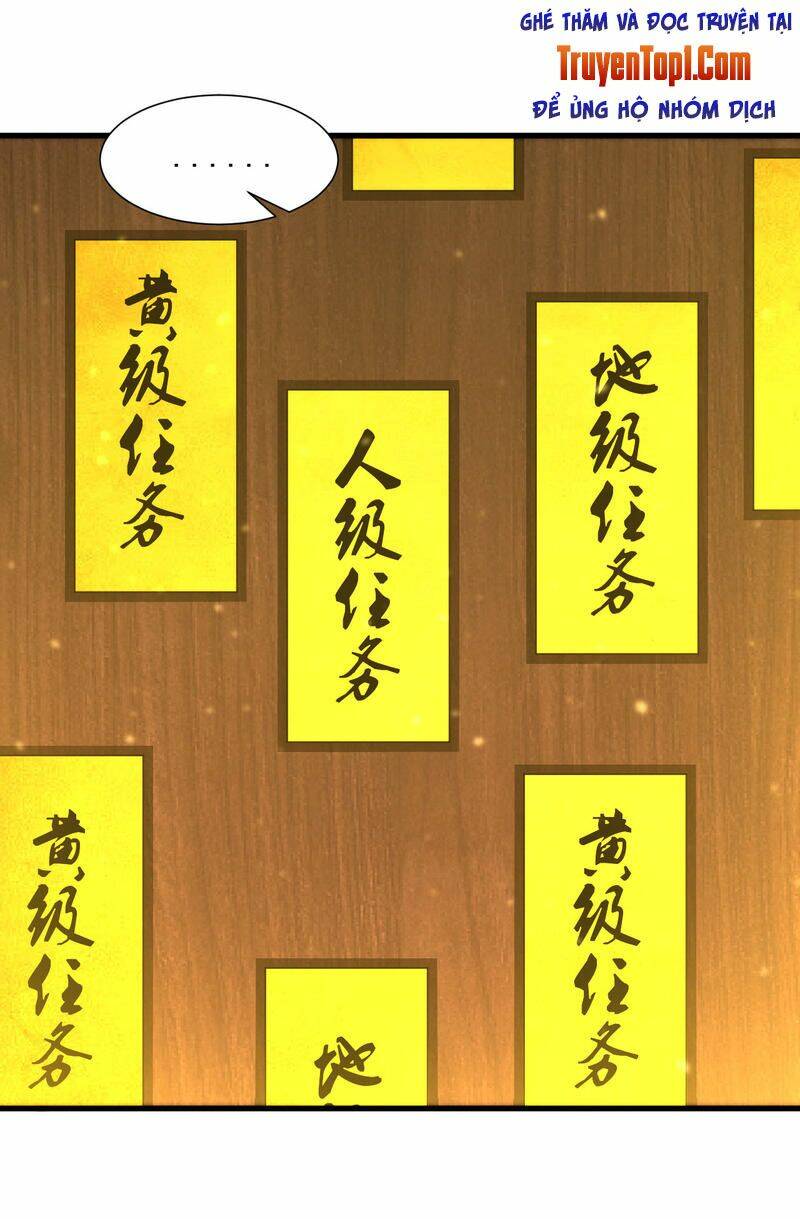 GHÉ THĂM VÀ ĐỌC TRUYỆN TẠI
TruyenTop1.Com
ĐỂ ỦNG HỘ NHÓM DỊCH
......
黄级任务
人级任务
地级任务
黄级任务
地
黄级任务